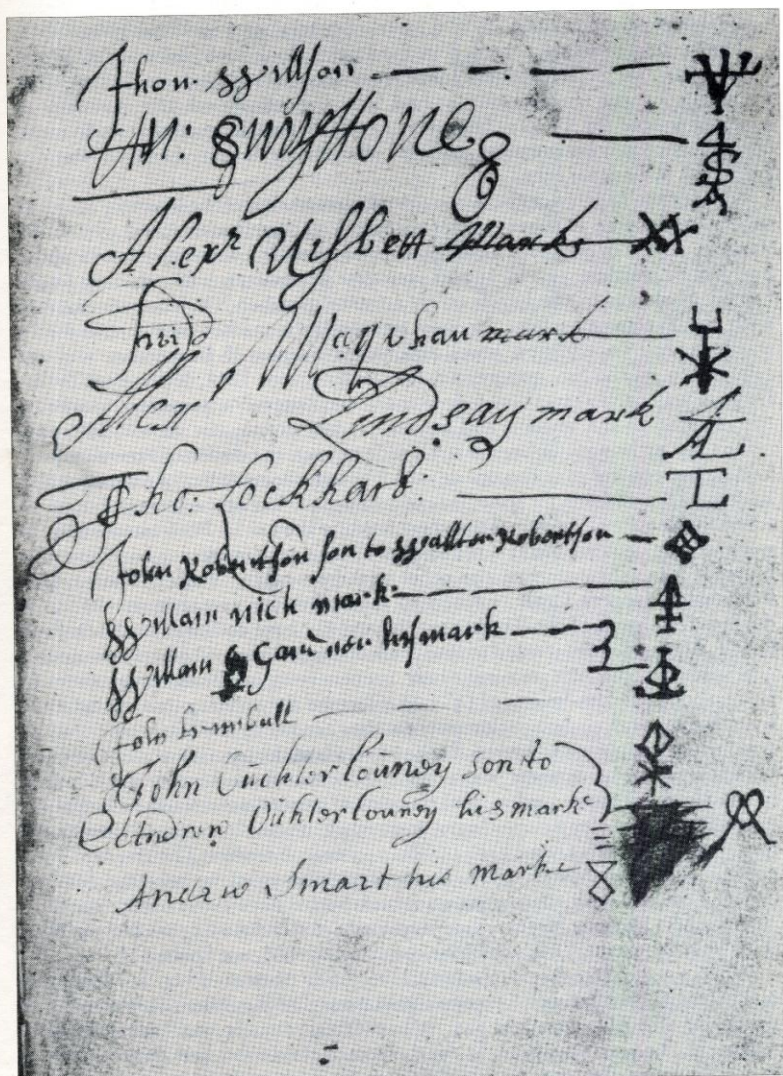 Jhon Willson
Alexr Nisbett Mark
mark
Alexr Lindsay mark
Tho: Lockhart:
John Robertson son to Wallter Robertson
William nick mark
William Gardner his mark
John
John Ouchterlouney son to
Andrew Ouchterlouney his mark
Andrew Smart his mark